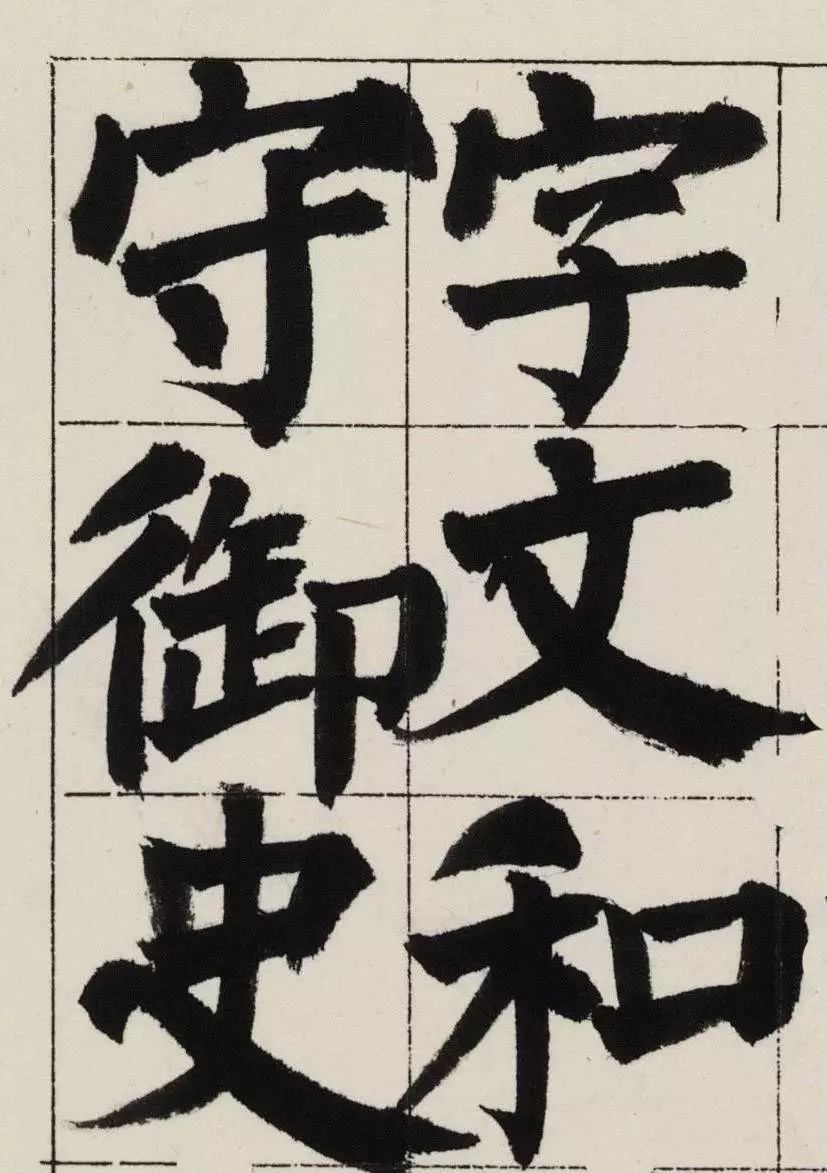 字文和
守御史